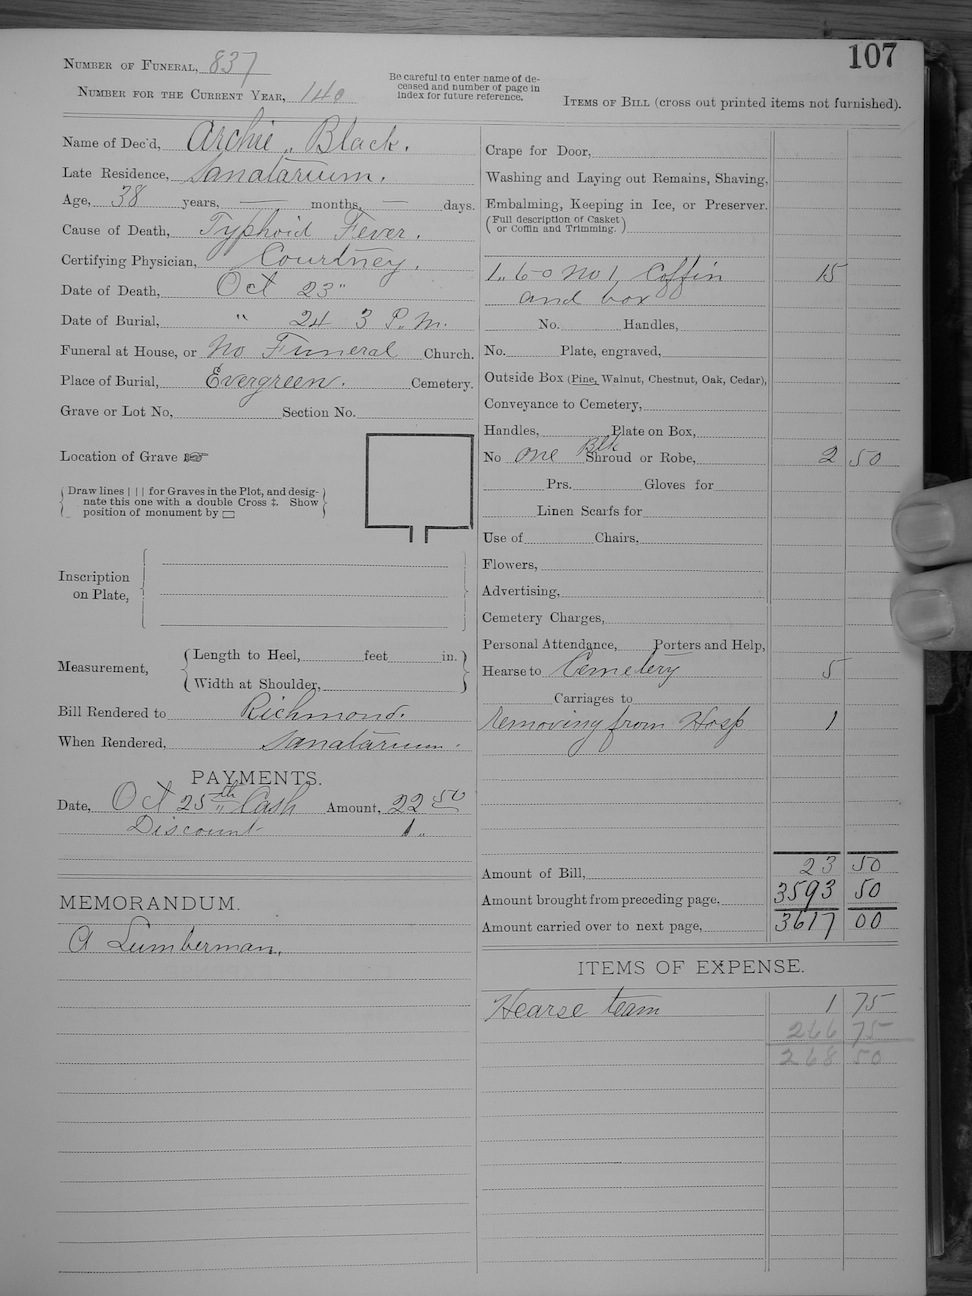 107
NUMBER OF FUNERAL, 837
NUMBER FOR THE CURRENT YEAR, 140
Be careful to enter name of de-
ceased and number of page in
index for future reference.
ITEMS OF BILL (cross out printed items not furnished).
Name of Dec'd, Archie Black.
Late Residence, Sanatarium.
Age, 38 years, — months, — days.
Cause of Death, Typhoid Fever.
Certifying Physician, Courtney.
Date of Death, Oct 23"
Date of Burial, " 24 3 P.M.
Funeral at House, or No Funeral Church.
Place of Burial, Evergreen. Cemetery.
Grave or Lot No, Section No.
Location of Grave ☞
Draw lines | | | for Graves in the Plot, and desig-
nate this one with a double Cross ‡. Show
position of monument by ▭
Inscription
on Plate,
Measurement,
Length to Heel, feet in.
Width at Shoulder,
Bill Rendered to Richmond.
When Rendered, Sanatarium.
PAYMENTS.
Date, Oct 25th Cash Amount, 22 50
Discount 1 "
MEMORANDUM.
A Lumberman.
Crape for Door,
Washing and Laying out Remains, Shaving,
Embalming, Keeping in Ice, or Preserver.
(Full description of Casket
or Coffin and Trimming.)
1, 6-0 No 1, Coffin 15
and box
No. Handles,
No. Plate, engraved,
Outside Box (Pine, Walnut, Chestnut, Oak, Cedar),
Conveyance to Cemetery,
Handles, Plate on Box,
No one Blk Shroud or Robe, 2 50
Prs. Gloves for
Linen Scarfs for
Use of Chairs,
Flowers,
Advertising,
Cemetery Charges,
Personal Attendance, Porters and Help,
Hearse to Cemetery 5
Carriages to
removing from Hosp 1
Amount of Bill, 23 50
Amount brought from preceding page, 3593 50
Amount carried over to next page, 3617 00
ITEMS OF EXPENSE.
Hearse team 1 75
266 75
268 50